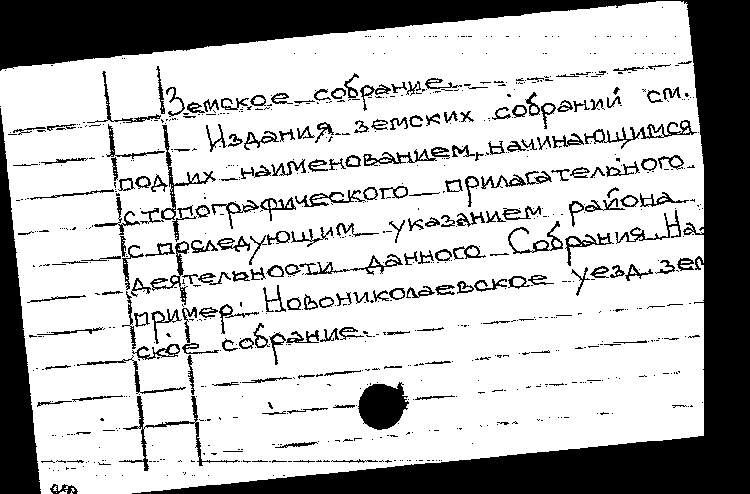 Земское собрание.
Издания земских собраний см.
под их наименованием, начинающимся
с топографического прилагательного
с последующим указанием района
деятельности данного Собрания. На-
пример: Новониколаевское уезд. зем
ское собрание.